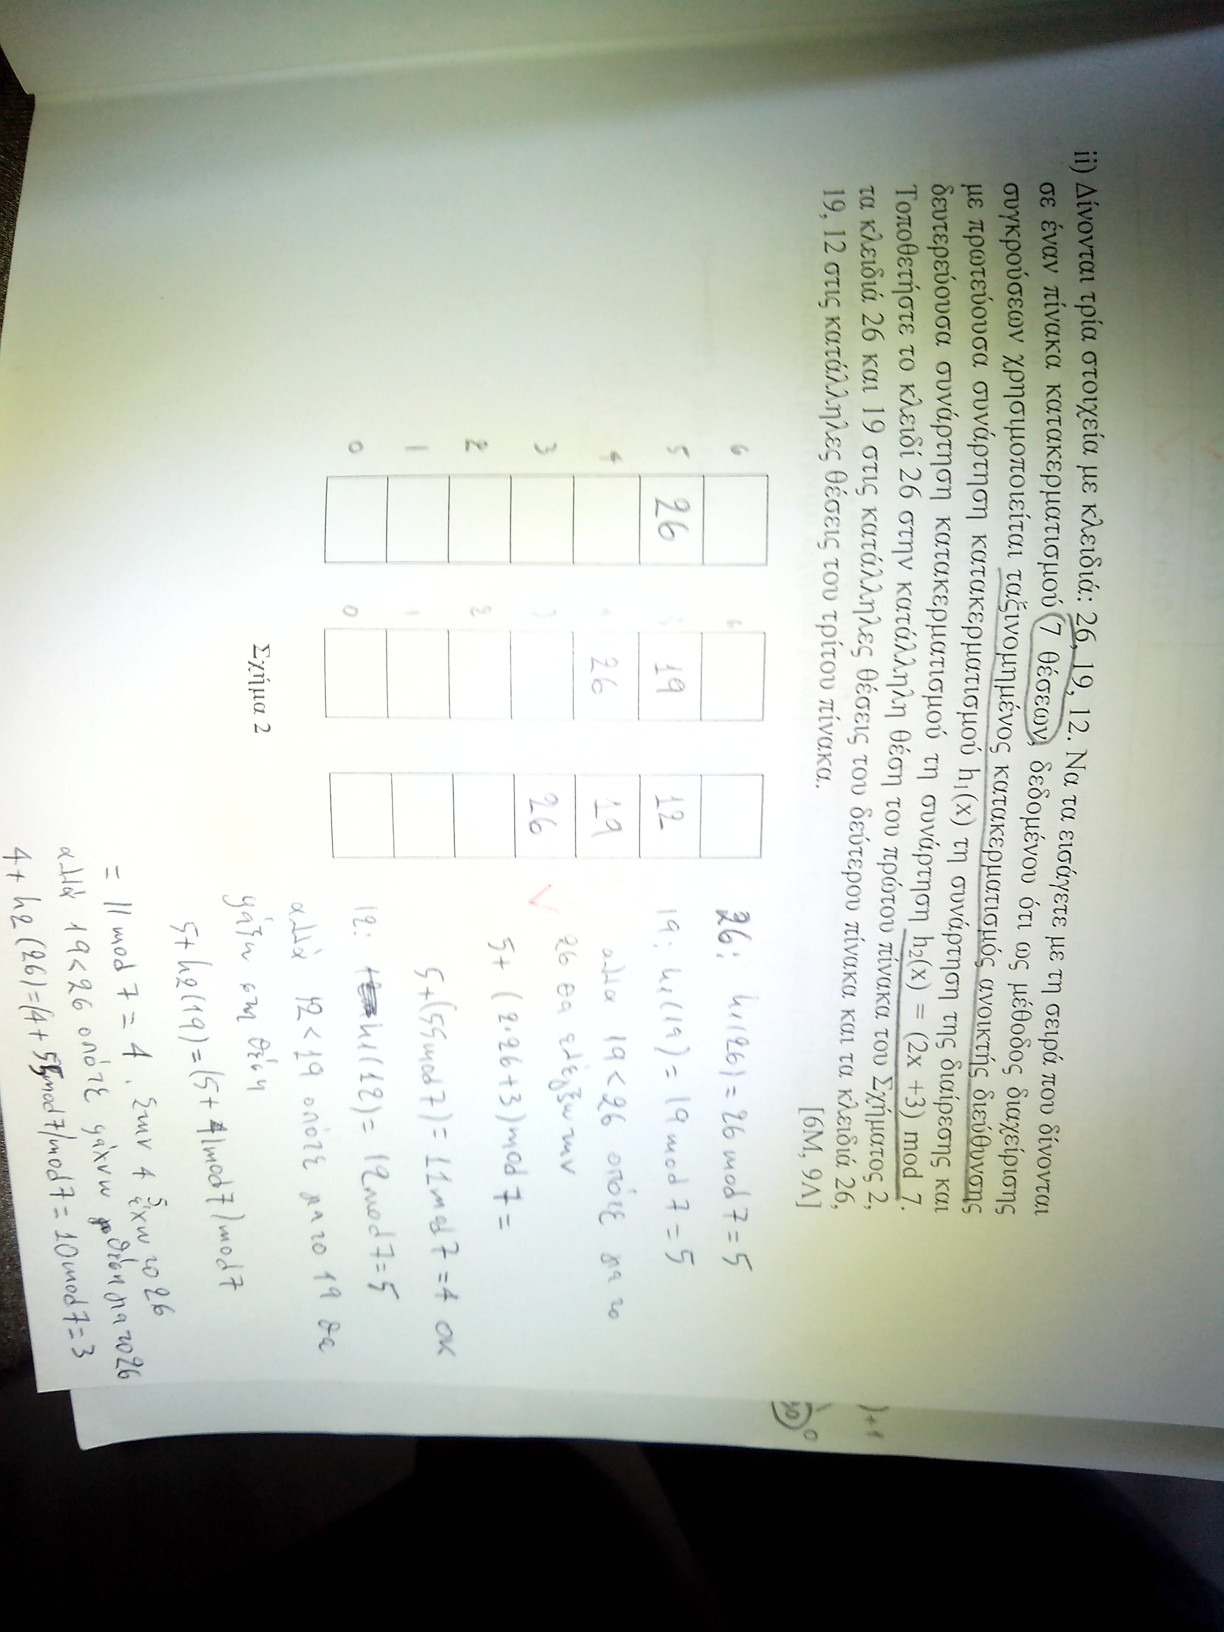 ii) Δίνονται τρία στοιχεία με κλειδιά: 26, 19, 12. Να τα εισάγετε με τη σειρά που δίνονται
σε έναν πίνακα κατακερματισμού 7 θέσεων, δεδομένου ότι ως μέθοδος διαχείρισης
συγκρούσεων χρησιμοποιείται ταξινομημένος κατακερματισμός ανοικτής διεύθυνσης
με πρωτεύουσα συνάρτηση κατακερματισμού h₁(x) τη συνάρτηση της διαίρεσης και
δευτερεύουσα συνάρτηση κατακερματισμού τη συνάρτηση h₂(x) = (2x +3) mod 7.
Τοποθετήστε το κλειδί 26 στην κατάλληλη θέση του πρώτου πίνακα του Σχήματος 2,
τα κλειδιά 26 και 19 στις κατάλληλες θέσεις του δεύτερου πίνακα και τα κλειδιά 26,
19, 12 στις κατάλληλες θέσεις του τρίτου πίνακα.
[6Μ, 9Λ]
6 6
5 26 5 19 12
4 26 19
3 3 26
2 2
1 1
0 0
Σχήμα 2
26: h1(26) = 26 mod 7 = 5
19: h1(19) = 19 mod 7 = 5
αλλα 19 < 26 οπότε για το
26 θα ελέγξω την
5+ (2·26+3) mod 7 =
5+(55mod7) = 11mod7 = 4 οκ
12: h1(12) = 12mod7=5
αλλά 12 < 19 οπότε για το 19 θα
ψάξω στη θέση
5+ h2(19) = (5+ 41mod7)mod7
= 11 mod 7 = 4. Στην 4 έχω το 26
αλλά 19<26 οπότε ψάχνω θέση για το 26
4+ h2 (26)=(4+ 55mod7)mod7 = 10mod7=3
)+1